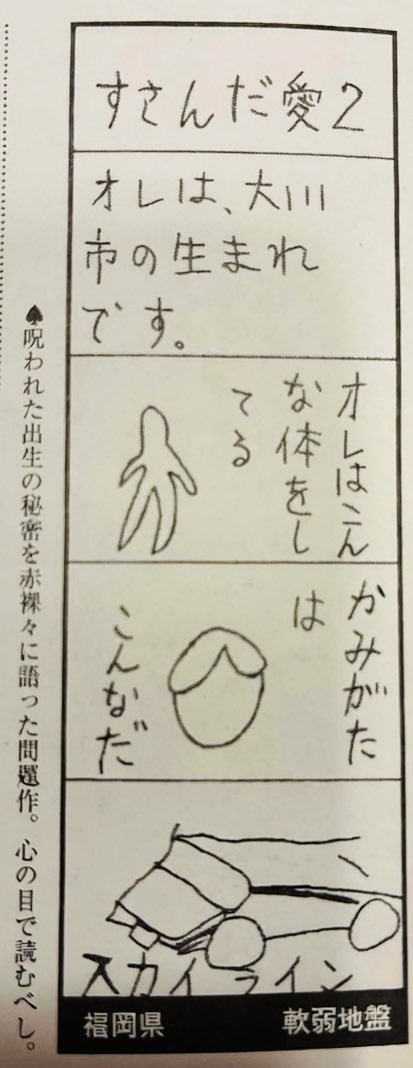 すさんだ愛2
オレは、大川
市の生まれ
です。
オレはこん
な体をし
てる
かみがた
は
こんなだ
スカイライン
福岡県
軟弱地盤
♠呪われた出生の秘密を赤裸々に語った問題作。心の目で読むべし。